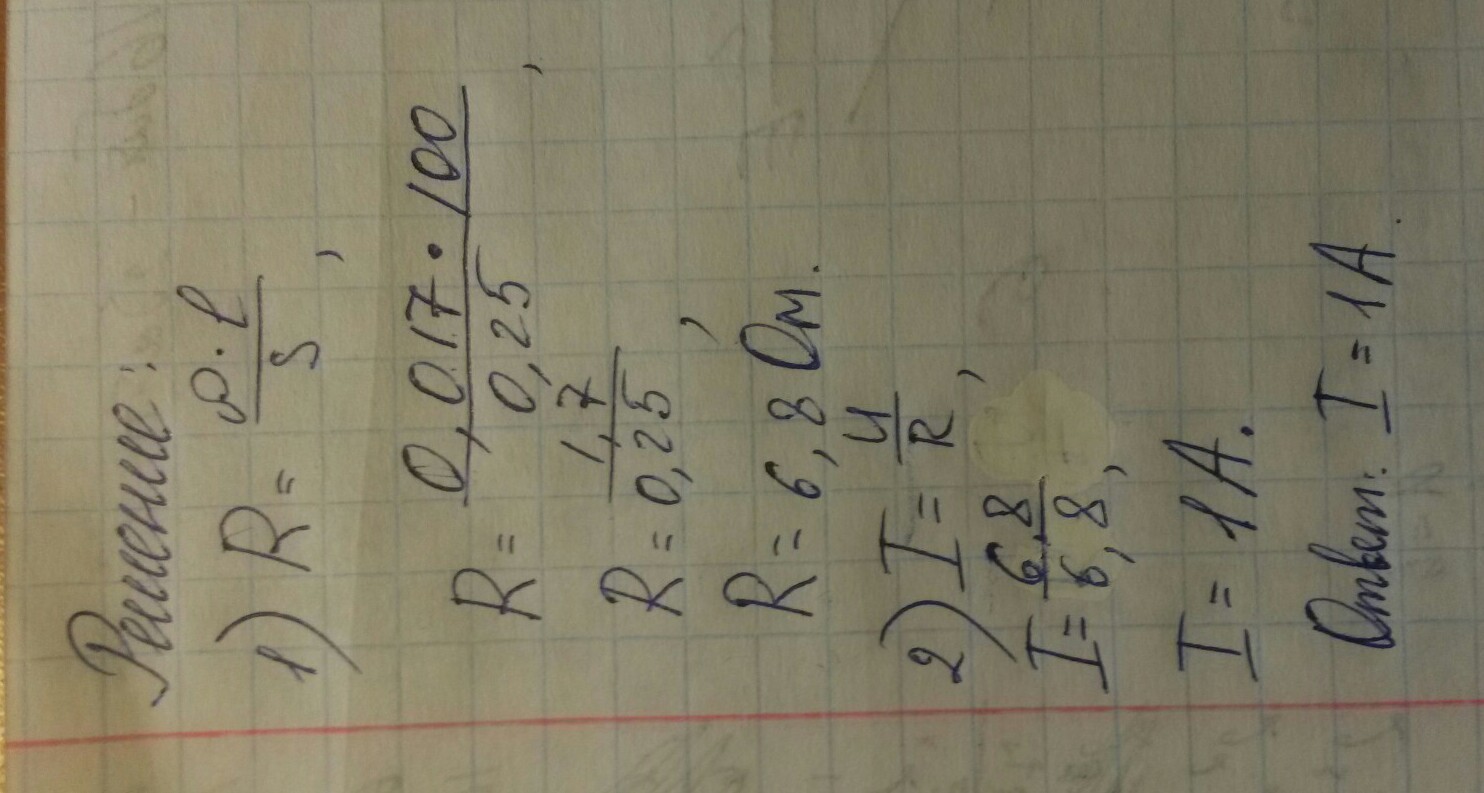 Решение:
1) R = ρ · l / S ,
R = 0,017 · 100 / 0,25 ,
R = 1,7 / 0,25 ,
R = 6,8 Ом.
2) I = U / R ,
I = 6,8 / 6,8 ,
I = 1 А.
Ответ: I = 1 А.